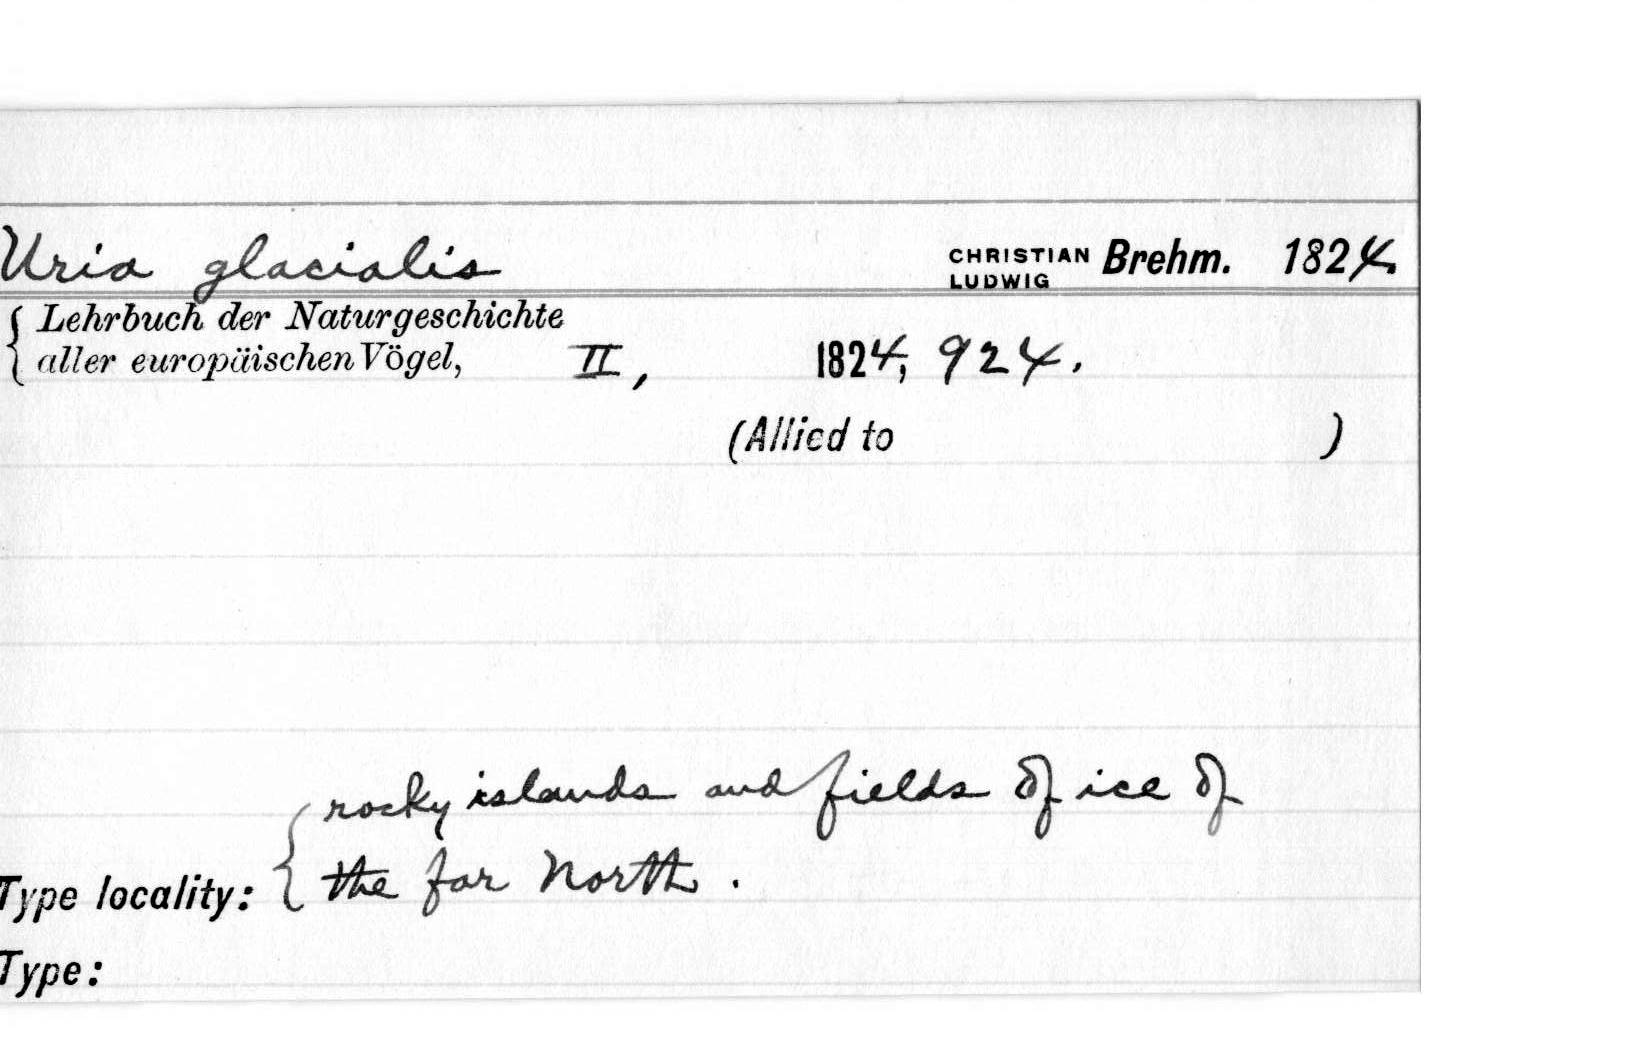 Uria glacialis CHRISTIAN LUDWIG Brehm. 1824.
Lehrbuch der Naturgeschichte
aller europäischen Vögel, II, 1824, 924.
(Allied to )
rocky islands and fields of ice of
Type locality: the far North.
Type: